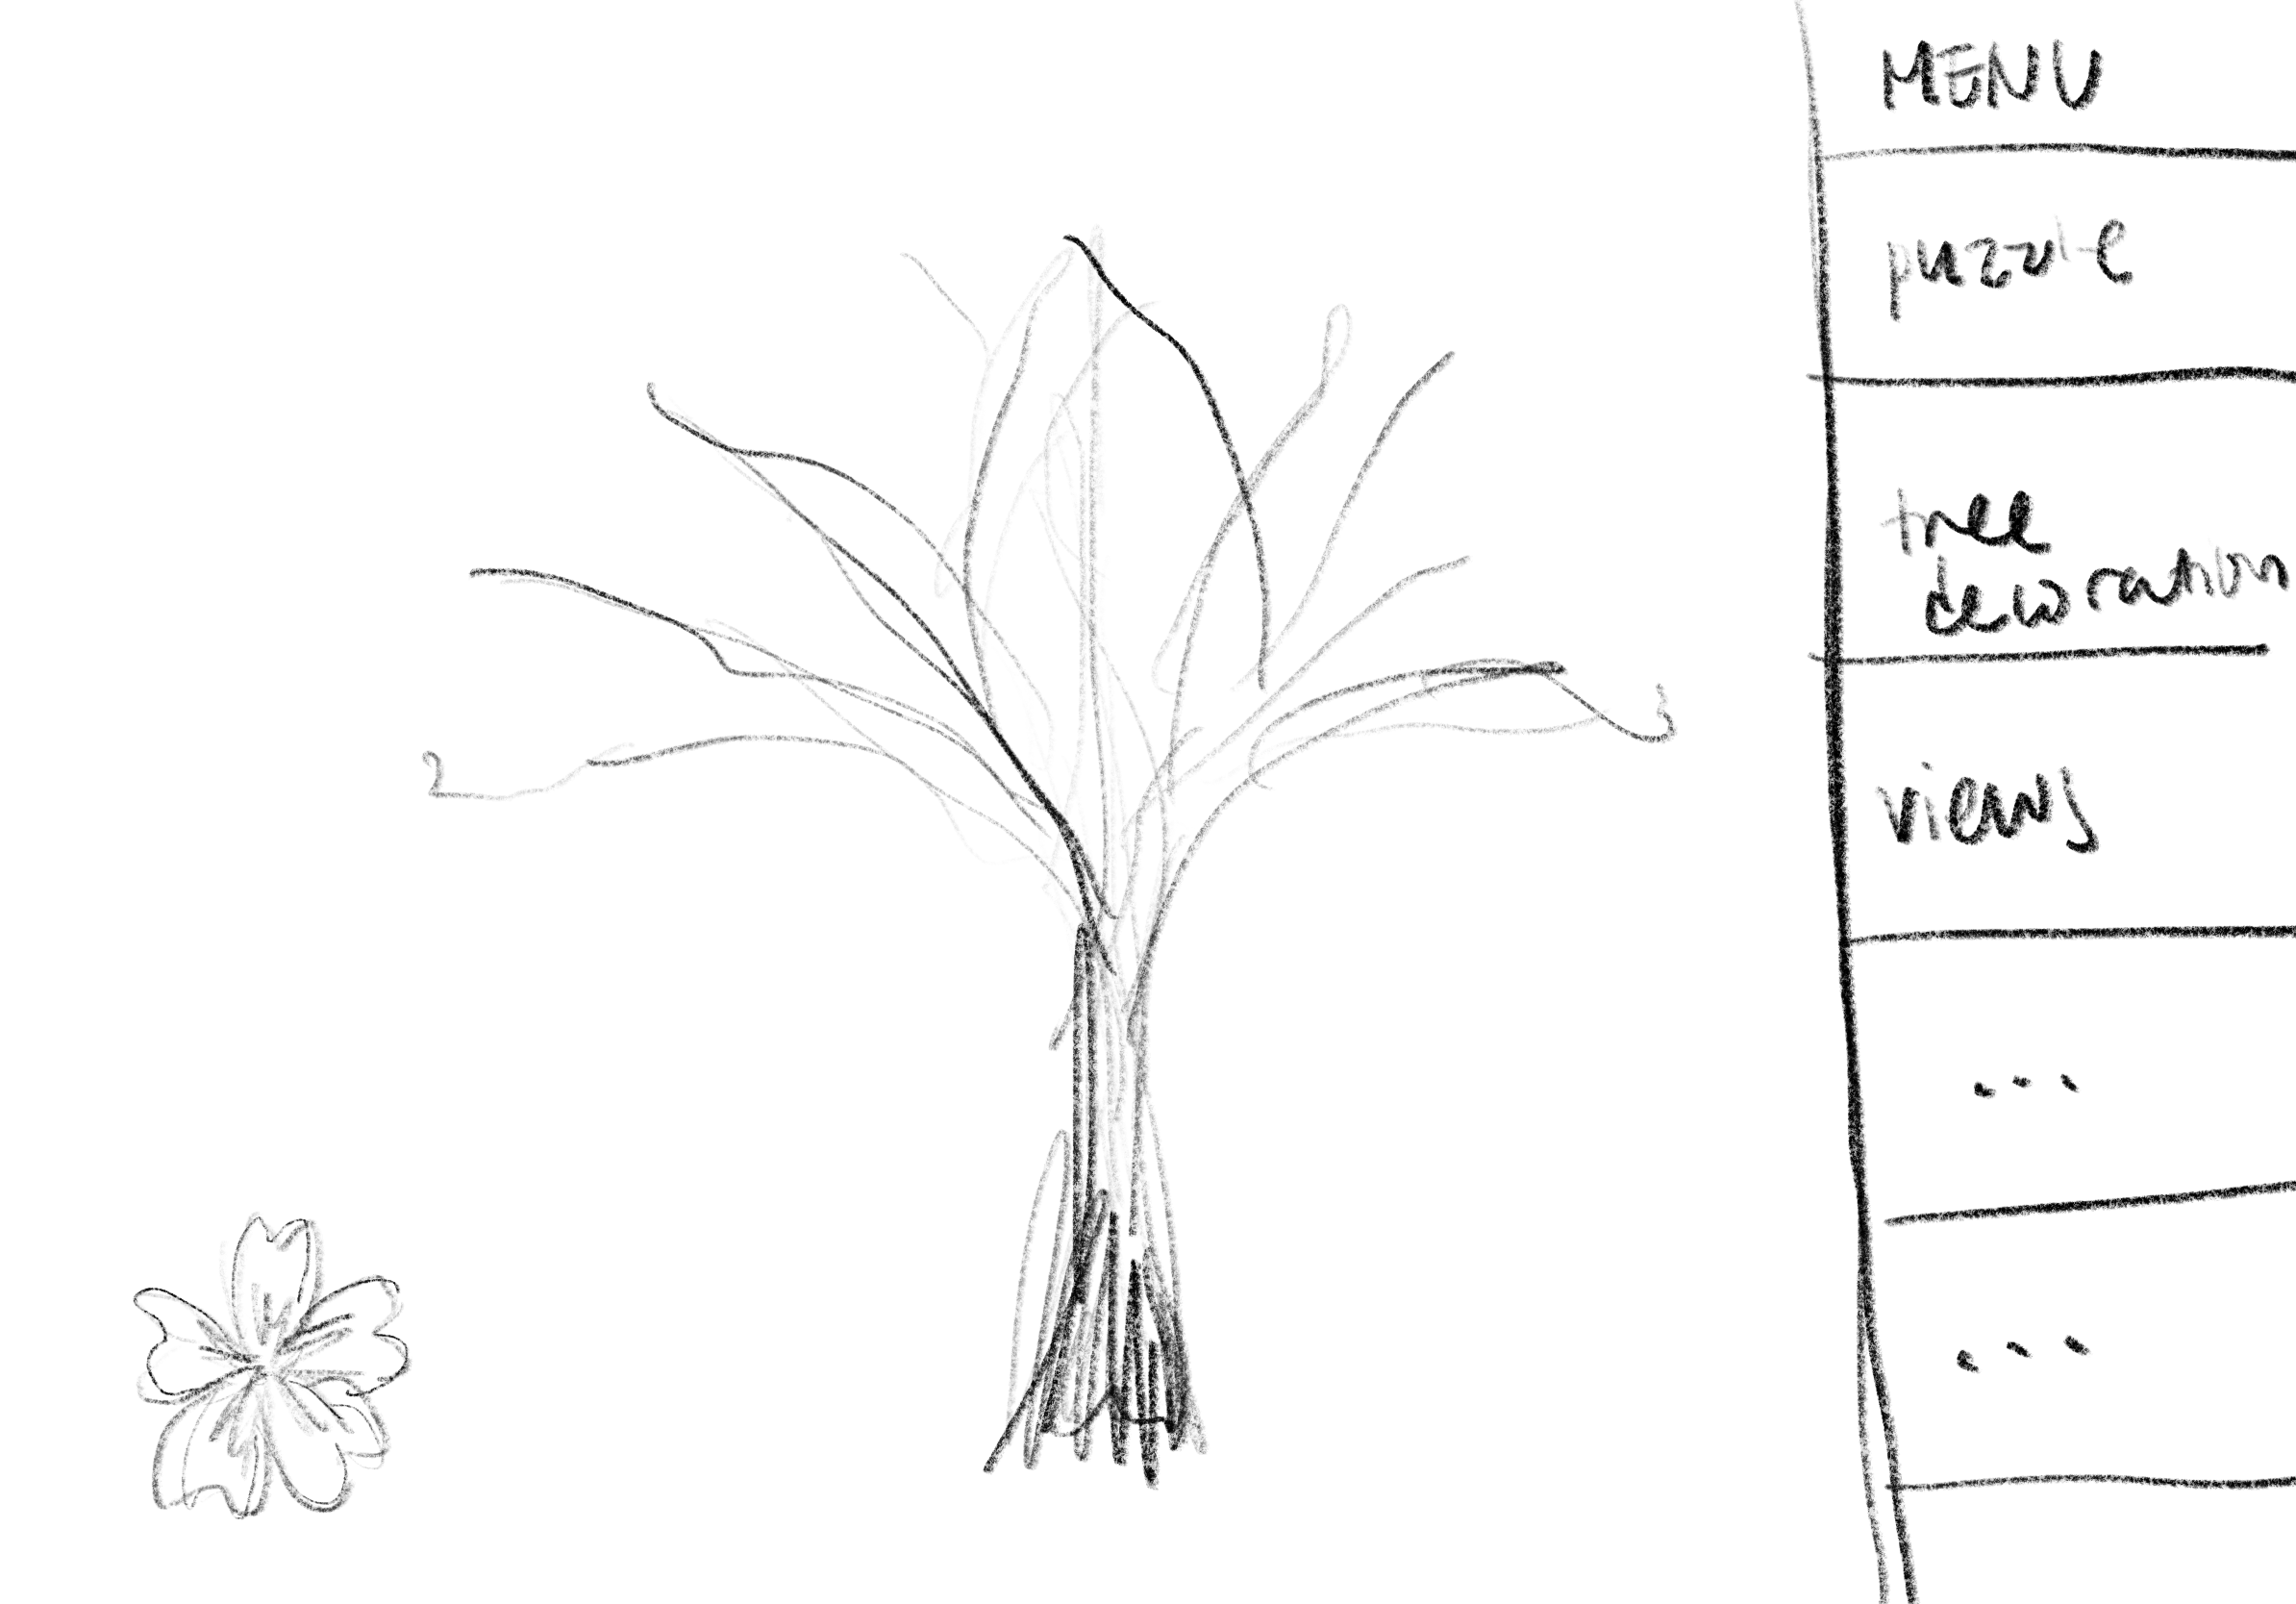 MENU
puzzle
tree
decoration
views
...
...